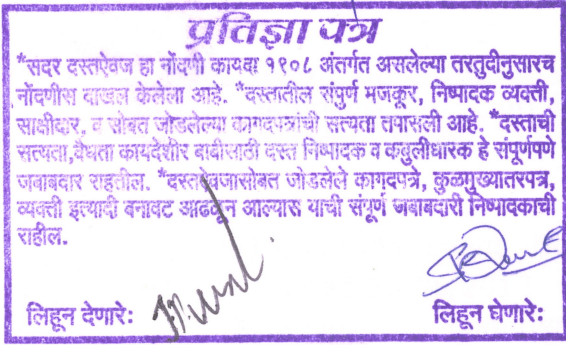 प्रतिज्ञा पत्र
*सदर दस्तऐवज हा नोंदणी कायदा १९०८ अंतर्गत असलेल्या तरतुदीनुसारच
नोंदणीस दाखल केलेला आहे. *दस्तातील संपुर्ण मजकूर, निष्पादक व्यक्ती,
साक्षीदार, व सोबत जोडलेल्या कागदपत्रांची सत्यता तपासली आहे. *दस्ताची
सत्यता,वैधता कायदेशीर बाबीसाठी दस्त निष्पादक व कबुलीधारक हे संपूर्णपणे
जबाबदार राहतील. *दस्तऐवजासोबत जोडलेले कागदपत्रे, कुळमुख्यातरपत्र,
व्यक्ती इत्यादी बनावट आढळून आल्यास याची संपूर्ण जबाबदारी निष्पादकाची
राहील.
लिहून देणारे:
लिहून घेणारे: